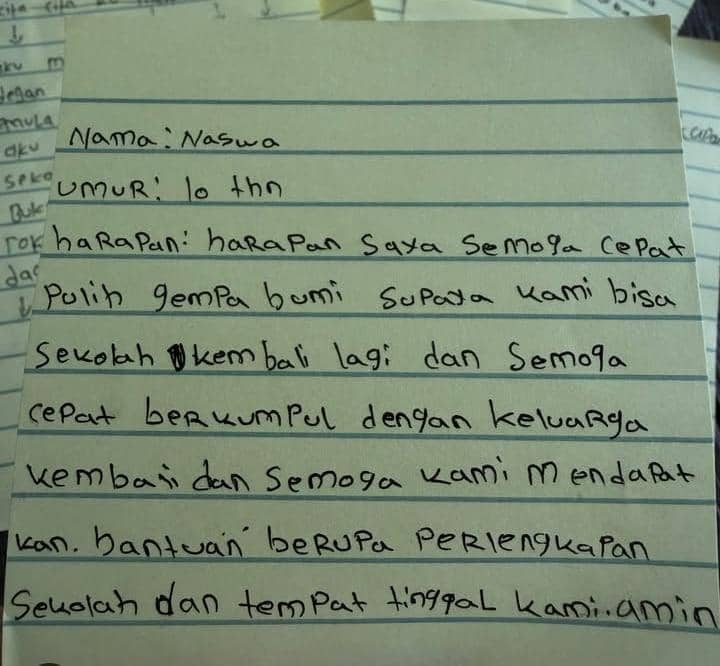 Nama: Naswa
UMUR: 10 thn
haRaPan: haRaPan saya semoga cepat
Pulih gempa bumi suPaya kami bisa
Sekolah kembali lagi dan Semoga
cepat beRkumpul dengan keluaRga
kembali dan semoga kami mendaPat
kan. bantuan beRuPa PeRlengkaPan
Sekolah dan tempat tinggal kami..amin